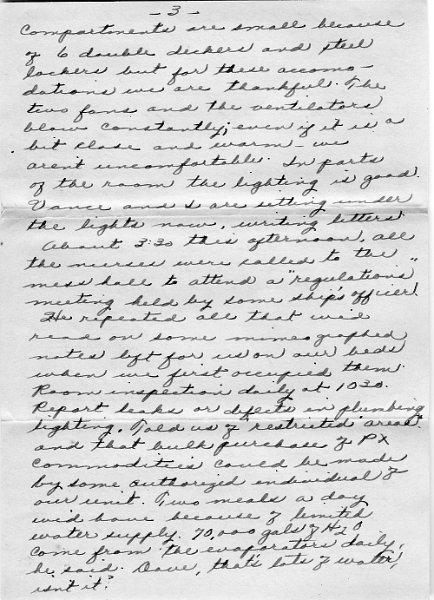 - 3 -
Compartments are small because
of 6 double deckers and steel
lockers but for these accomo-
dations we are thankful. The
two fans and the ventilators
blow constantly; even if it is a
bit close and warm - we
aren't uncomfortable. In parts
of the room the lighting is good.
Vance and I are sitting under
the lights now, writing letters.
About 3:30 this afternoon, all
the nurses were called to the
mess hall to attend a "regulations"
meeting held by some ship's officer.
He repeated all that we'd
read on some mimeographed
notes left for us on our beds
when we first occupied them.
Room inspection daily at 1030.
Report leaks or defects in plumbing,
lighting. Told us of "restricted areas"
and that bulk purchase of PX
commodities could be made
by some authorized individual of
our unit. Two meals a day
we'd have because of limited
water supply. 70,000 gals of H2O
come from the evaporators daily,
he said. Dave, that's lots of water,
isn't it?